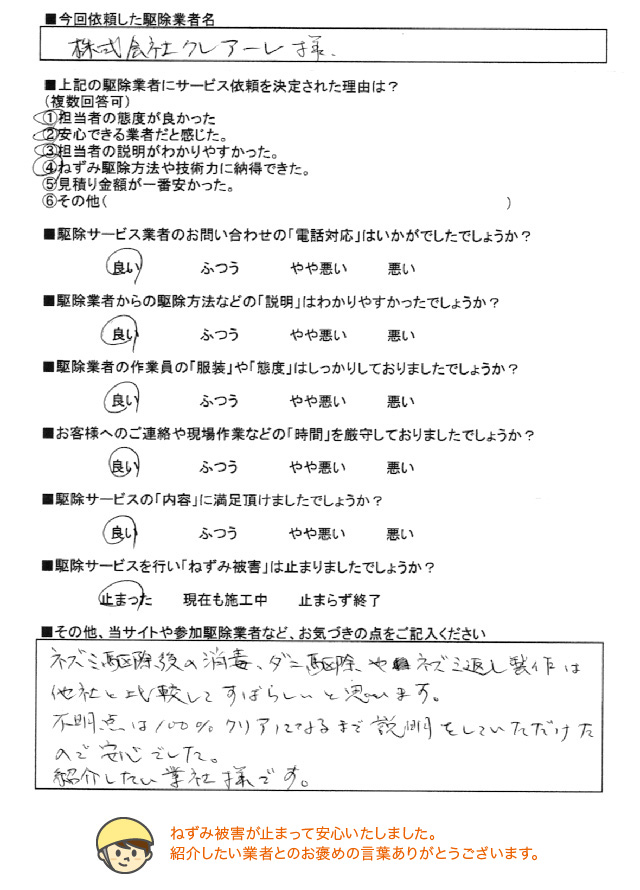 ■今回依頼した駆除業者名
株式会社クレアーレ様.
■上記の駆除業者にサービス依頼を決定された理由は？
(複数回答可)
①担当者の態度が良かった
②安心できる業者だと感じた。
③担当者の説明がわかりやすかった。
④ねずみ駆除方法や技術力に納得できた。
⑤見積り金額が一番安かった。
⑥その他( )
■駆除サービス業者のお問い合わせの「電話対応」はいかがでしたでしょうか？
良い ふつう やや悪い 悪い
■駆除業者からの駆除方法などの「説明」はわかりやすかったでしょうか？
良い ふつう やや悪い 悪い
■駆除業者の作業員の「服装」や「態度」はしっかりしておりましたでしょうか？
良い ふつう やや悪い 悪い
■お客様へのご連絡や現場作業などの「時間」を厳守しておりましたでしょうか？
良い ふつう やや悪い 悪い
■駆除サービスの「内容」に満足頂けましたでしょうか？
良い ふつう やや悪い 悪い
■駆除サービスを行い「ねずみ被害」は止まりましたでしょうか？
止まった 現在も施工中 止まらず終了
■その他、当サイトや参加駆除業者など、お気づきの点をご記入ください
ネズミ駆除後の消毒、ダニ駆除、やネズミ返し製作は
他社と比較してすばらしいと思います。
不明点は100%クリアになるまで説明をしていただけた
ので安心でした。
紹介したい業社様です。
ねずみ被害が止まって安心いたしました。
紹介したい業者とのお褒めの言葉ありがとうございます。